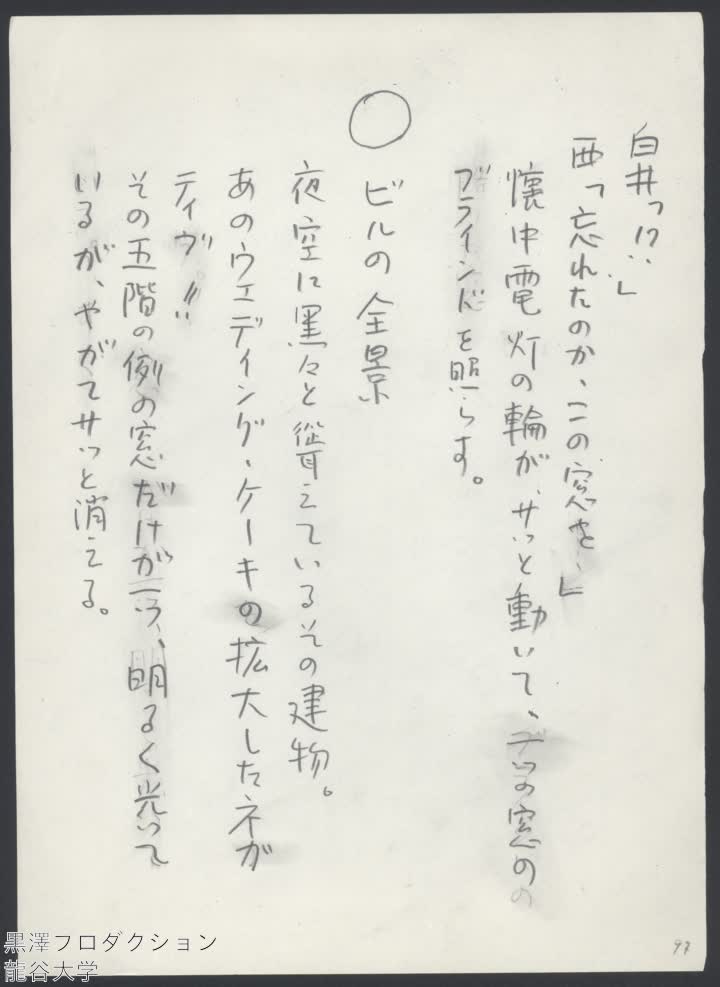 白井「！？…」
西「忘れたのか、この窓を…」
懐中電灯の輪が、サッと動いて、一つの窓の
ブラインドを照らす。
○
ビルの全景
夜空に黒々と聳えているその建物。
あのウェディング・ケーキの拡大したネガ
ティヴ!!
その五階の例の窓だけが一つ、明るく光って
いるが、やがてサッと消える。
97
黒澤プロダクション
龍谷大学